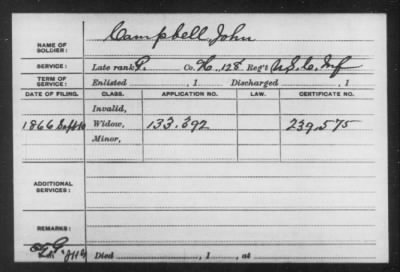 Campbell, John
NAME OF SOLDIER:
SERVICE: Late rank P. Co. H, 128 Reg't U.S.C. Inf
TERM OF SERVICE: Enlisted , 1 Discharged , 1
DATE OF FILING. CLASS. APPLICATION NO. LAW. CERTIFICATE NO.
Invalid,
1866 Sept Widow, 133.392 239,575
Minor,
ADDITIONAL SERVICES:
REMARKS:
Died , 1 , at